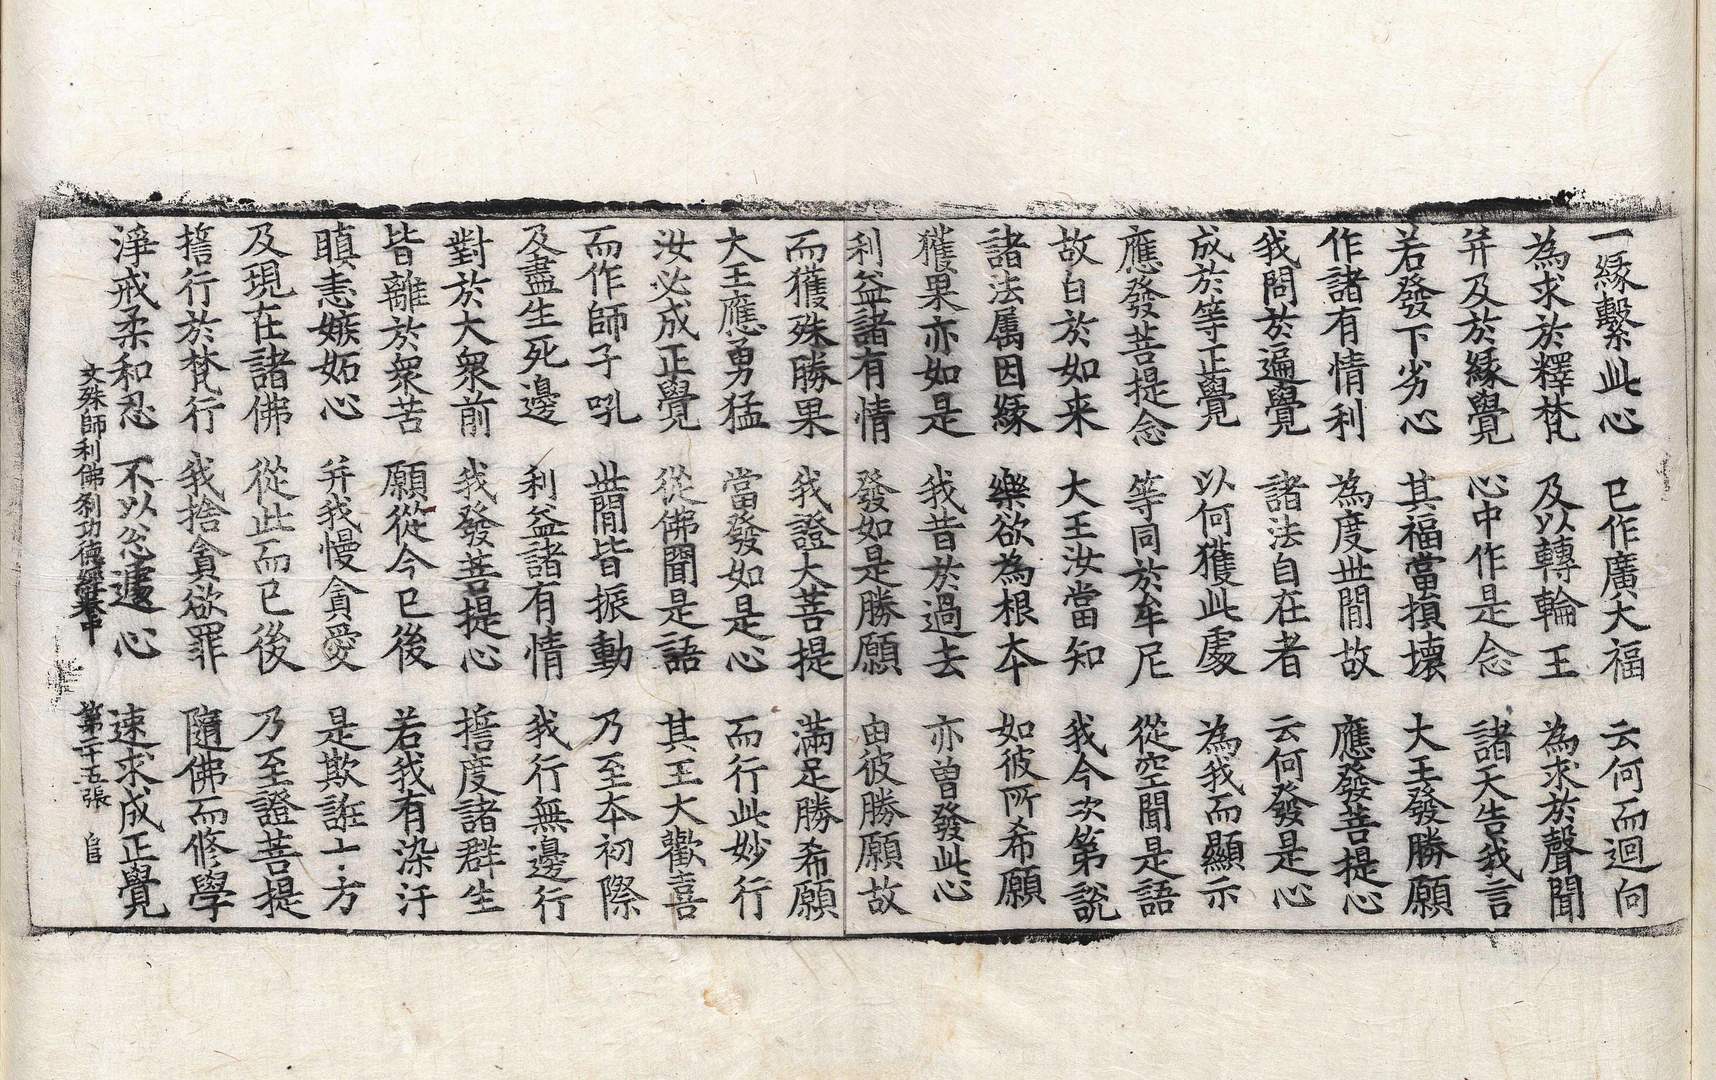 一緣繫此心 已作廣大福 云何而迴向
為求於釋梵 及以轉輪王 為求於聲聞
并及於緣覺 心中作是念 諸天告我言
若發下劣心 其福當損壞 大王發勝願
作諸有情利 為度世間故 應發菩提心
我問於遍覺 諸法自在者 云何發是心
成於等正覺 以何獲此處 為我而顯示
應發菩提念 等同於牟尼 從空聞是語
故白於如来 大王汝當知 我今次第說
諸法属因緣 樂欲為根本 如彼所希願
獲果亦如是 我昔於過去 亦曾發此心
利益諸有情 發如是勝願 由彼勝願故
而獲殊勝果 我證大菩提 滿足勝希願
大王應勇猛 當發如是心 而行此妙行
汝必成正覺 從佛聞是語 其王大歡喜
而作師子吼 世間皆振動 乃至本初際
及盡生死邊 利益諸有情 我行無邊行
對於大衆前 我發菩提心 擔度諸群生
皆離於衆苦 願從今已後 若我有染汙
瞋恚嫉妬心 并我慢貪愛 是欺誑十方
及現在諸佛 從此而已後 乃至證菩提
擔行於梵行 我捨貪欲罪 隨佛而修學
淨戒柔和忍 不以忩遽心 速求成正覺
文殊師利佛刹功德經卷中 第二十五張